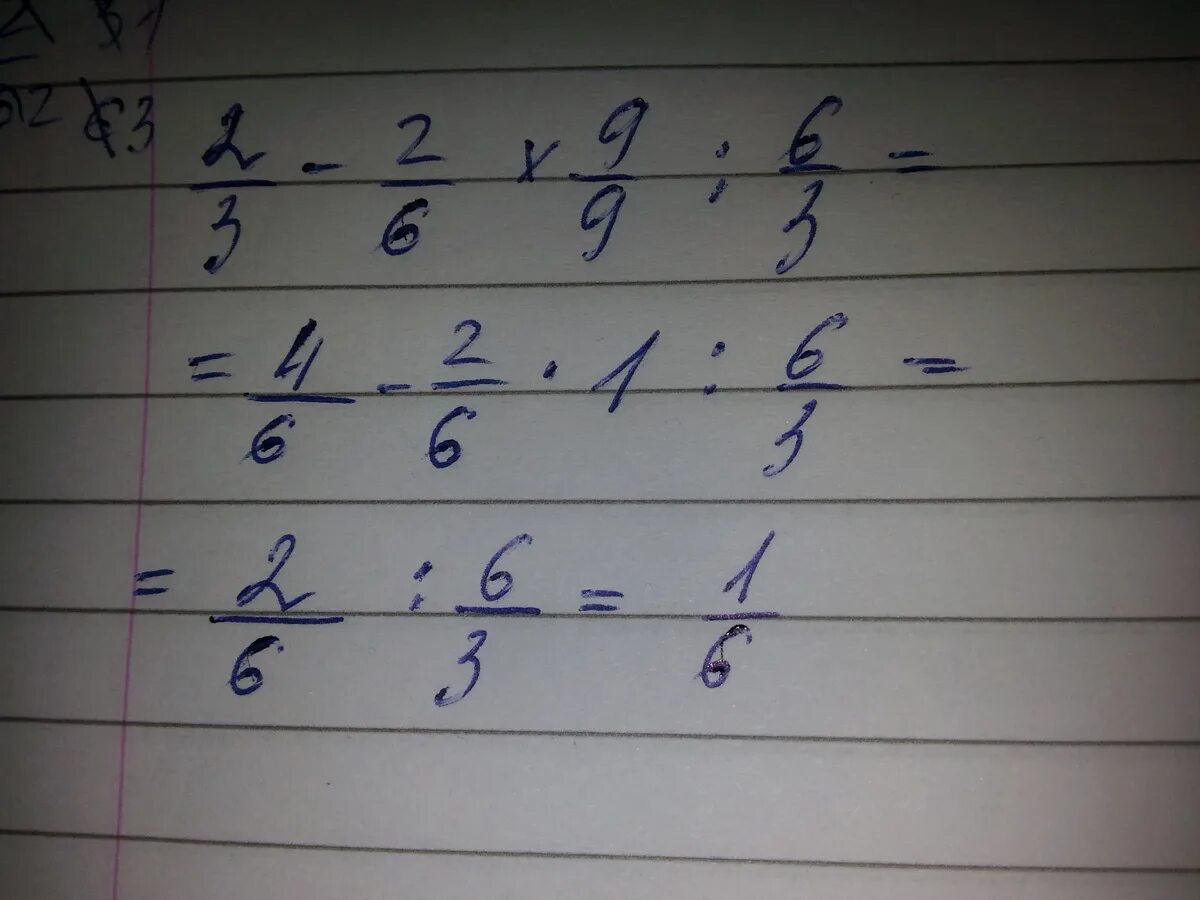 2/3 - 2/6 × 9/9 : 6/3 =
= 4/6 - 2/6 · 1 : 6/3 =
= 2/6 : 6/3 = 1/6